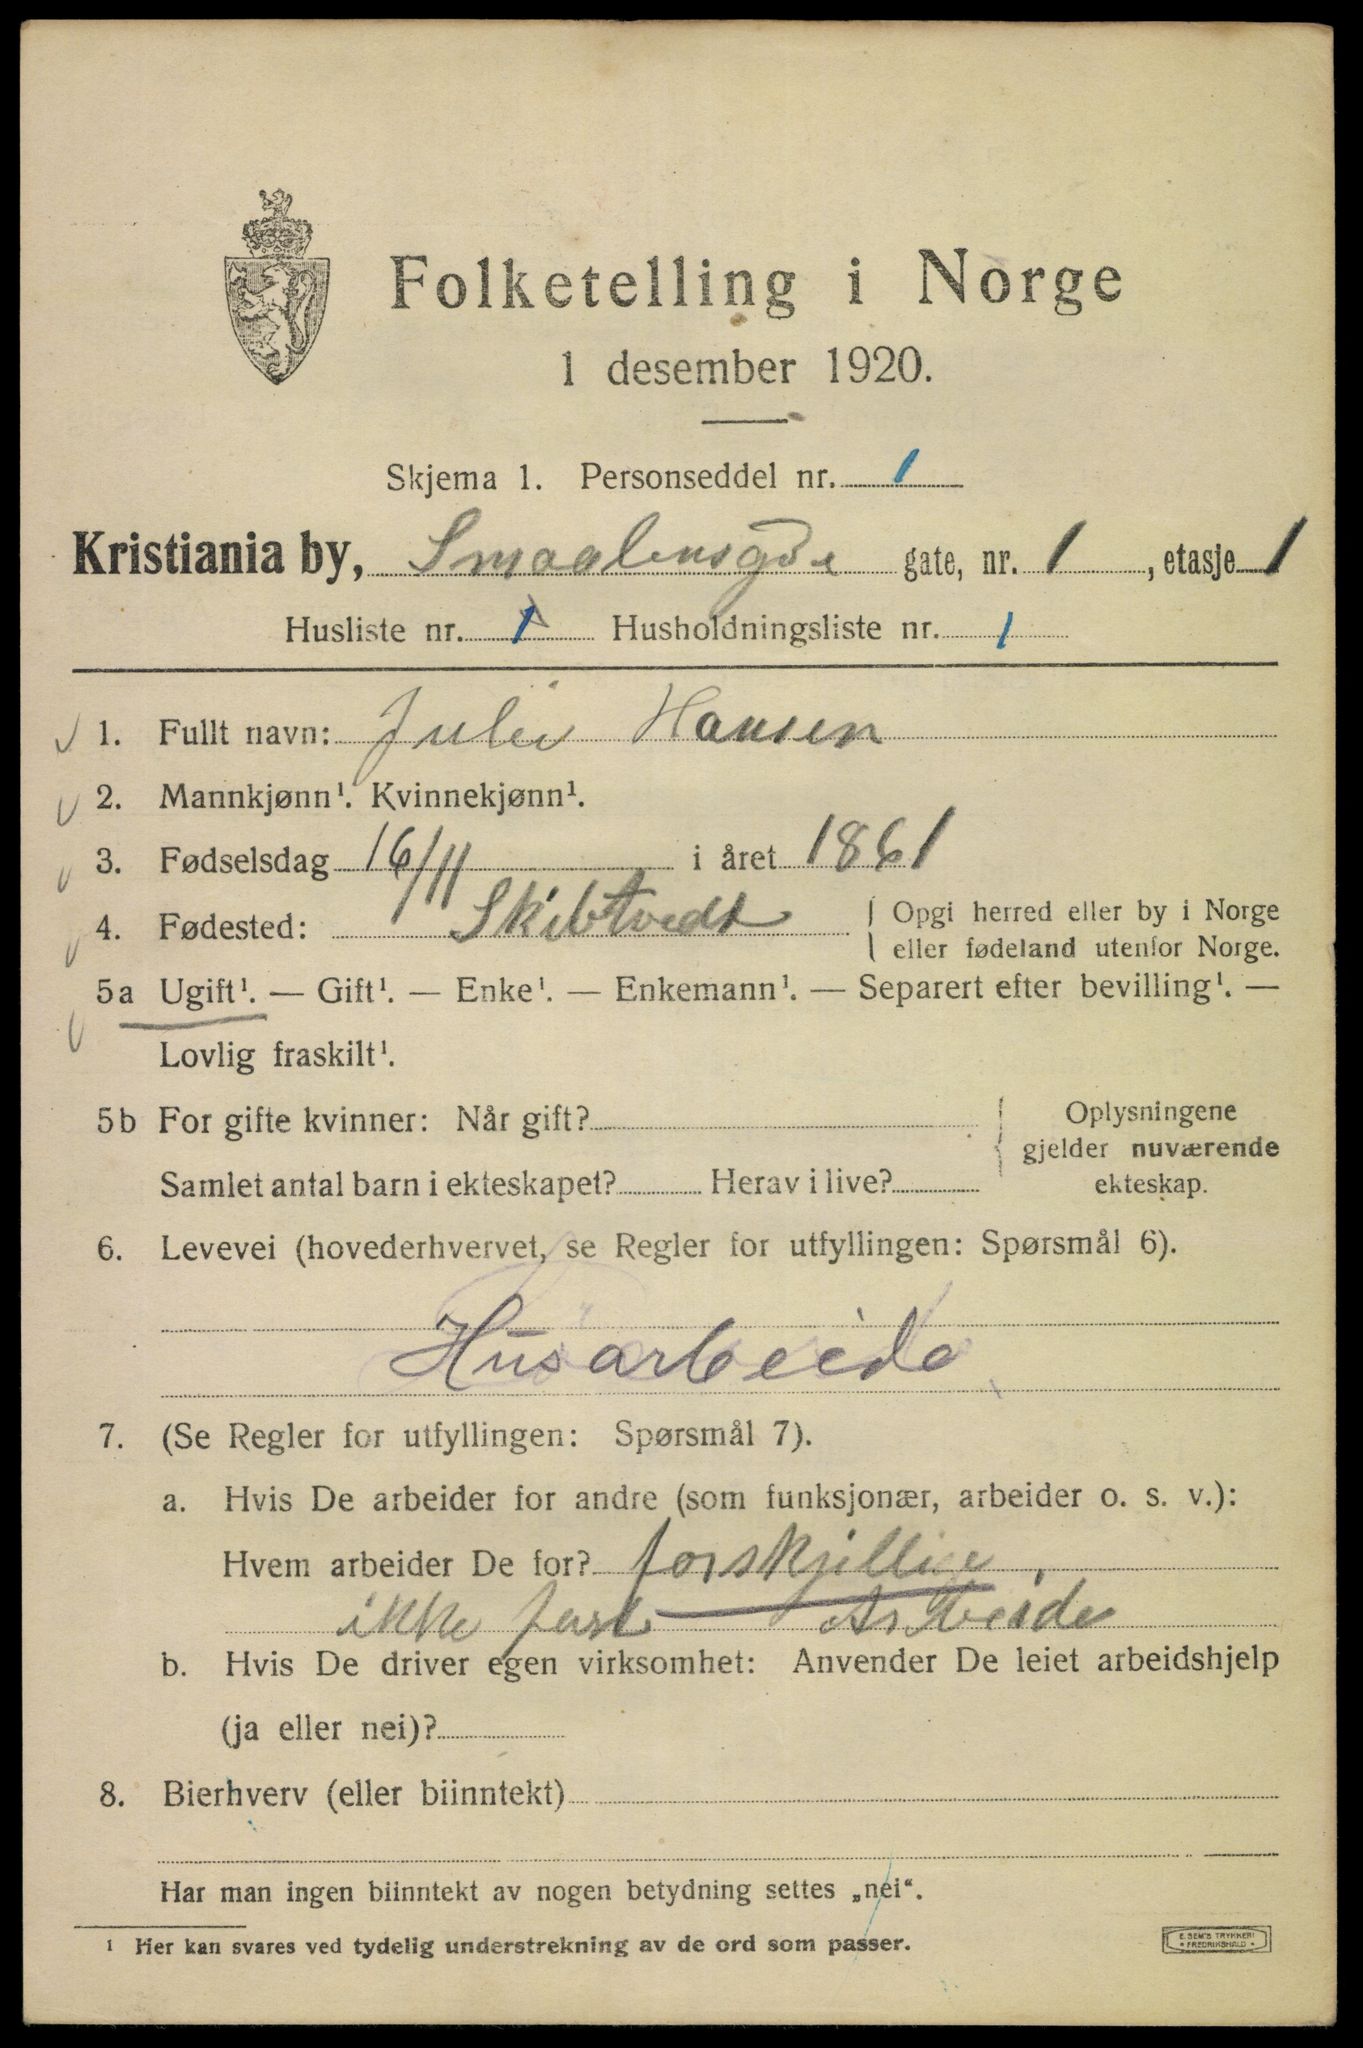 Folketelling i Norge
1 desember 1920.
Skjema 1. Personseddel nr. 1
Kristiania by, Smaalensgt gate, nr. 1, etasje 1
Husliste nr. 1 Husholdningsliste nr. 1
1. Fullt navn: Julie Hansen
2. Mannkjønn¹. Kvinnekjønn¹.
3. Fødselsdag 16/11 i året 1861
4. Fødested: Skibtvedt { Opgi herred eller by i Norge
eller fødeland utenfor Norge.
5a Ugift¹. — Gift¹. — Enke¹. — Enkemann¹. — Separert efter bevilling¹. —
Lovlig fraskilt¹.
5b For gifte kvinner: Når gift? { Oplysningene
gjelder nuværende
Samlet antal barn i ekteskapet? Herav i live? ekteskap.
6. Levevei (hovederhvervet, se Regler for utfyllingen: Spørsmål 6).
Husarbeide
7. (Se Regler for utfyllingen: Spørsmål 7).
a. Hvis De arbeider for andre (som funksjonær, arbeider o. s. v.):
Hvem arbeider De for? forskjellige
ikke fast Arbeide
b. Hvis De driver egen virksomhet: Anvender De leiet arbeidshjelp
(ja eller nei)?
8. Bierhverv (eller biinntekt)
Har man ingen biinntekt av nogen betydning settes „nei“.
¹ Her kan svares ved tydelig understrekning av de ord som passer.
E. SEM'S TRYKKERI
• FREDRIKSHALD •